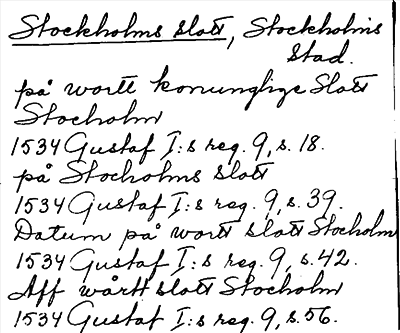 Stockholms slott, Stockholms
stad.
på wortt konunglige Slott
Stocholm
1534 Gustaf I:s reg. 9, s. 18.
på Stocholms slott
1534 Gustaf I:s reg. 9, s. 39.
Datum på wortt slott Stocholm
1534 Gustaf I:s reg. 9, s. 42.
Aff wårtt slott Stocholm
1534 Gustaf I:s reg. 9, s. 56.